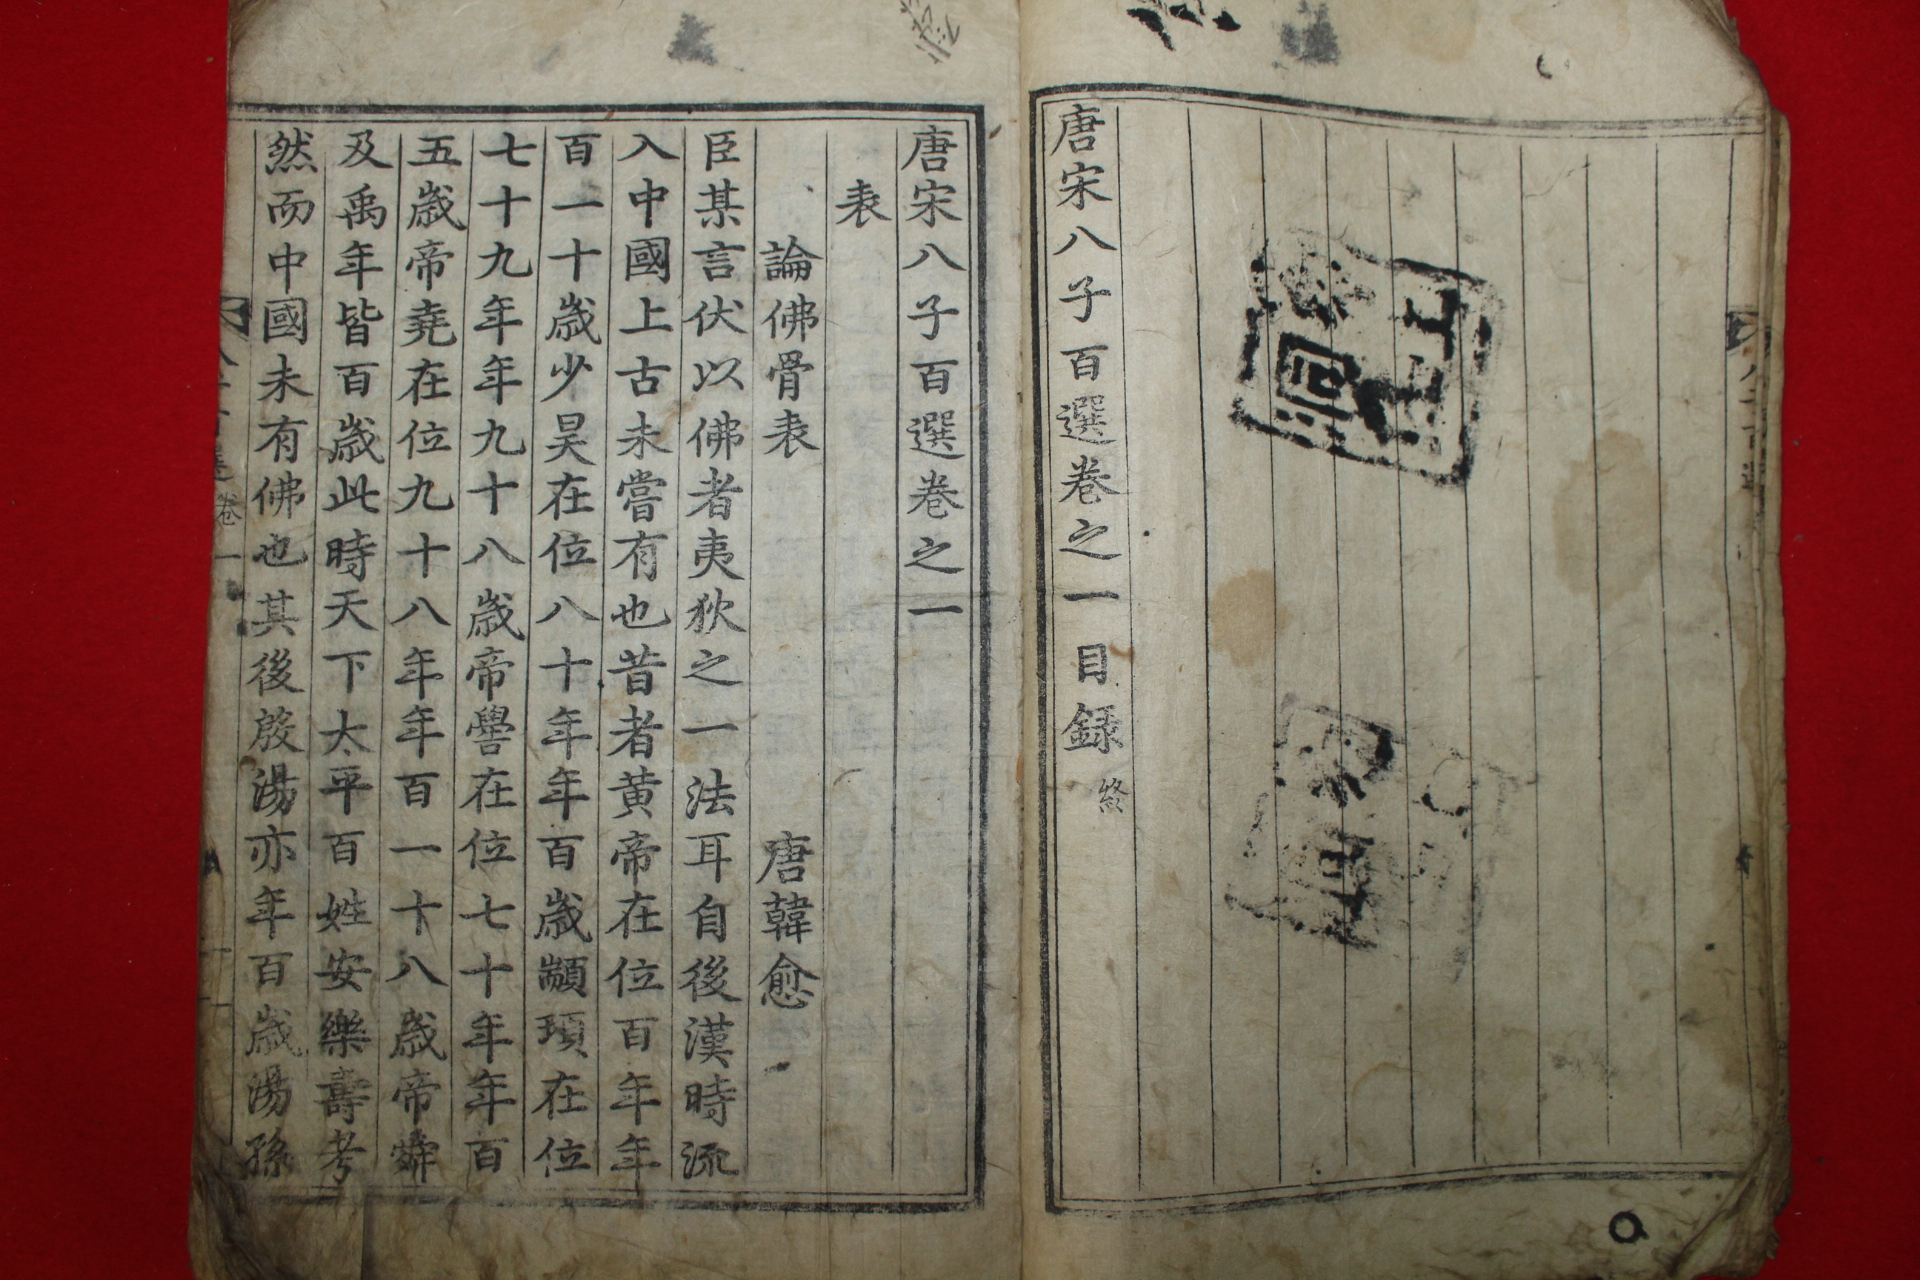 唐宋八子百選卷之一目錄終
唐宋八子百選卷之一
表
論佛骨表 唐韓愈
臣某言伏以佛者夷狄之一法耳自後漢時流
入中國上古未嘗有也昔者黃帝在位百年年
百一十歲少昊在位八十年年百歲顓頊在位
七十九年年九十八歲帝嚳在位七十年年百
五歲帝堯在位九十八年年百一十八歲帝舜
及禹年皆百歲此時天下太平百姓安樂壽考
然而中國未有佛也其後殷湯亦年百歲湯孫